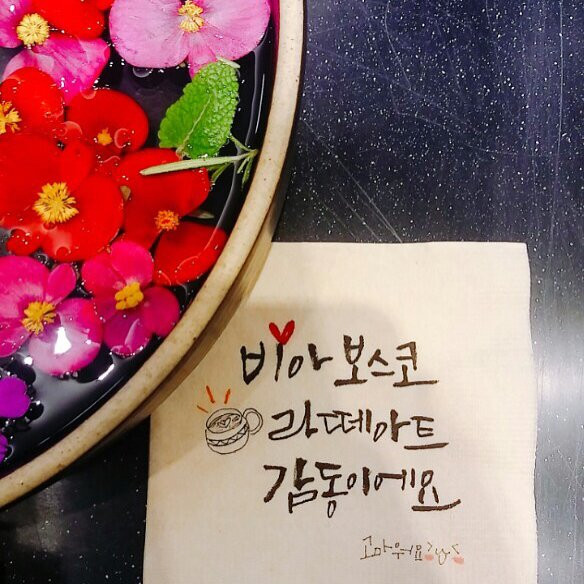 비아 보스코
라떼아트
감동이에요
고마워요>.<